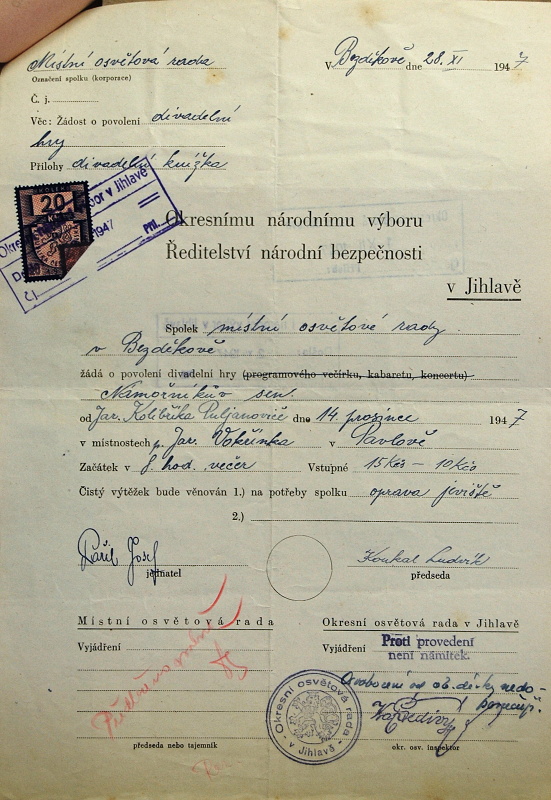 Místní osvětová rada
V Bezděkově dne 28. XI 1947
Označení spolku (korporace)
Č. j.
Věc: Žádost o povolení divadelní
hry
Přílohy divadelní knížka
20
1947
Příl.
Okresnímu národnímu výboru
Ředitelství národní bezpečnosti
v Jihlavě
Spolek místní osvětové rady
v Bezděkově
žádá o povolení divadelní hry (programového večírku, kabaretu, koncertu)
Námořníkův sen.
od Jar. Kolibříka Puljanoviče dne 14. prosince 1947
v místnostech p. Jar. Vokřínka v Pavlově
Začátek v 8 hod. večer Vstupné 15 Kčs – 10 Kčs
Čistý výtěžek bude věnován 1.) na potřeby spolku oprava jeviště
2.)
Josef
Koukal Ludvík
jednatel
předseda
Místní osvětová rada
Okresní osvětová rada v Jihlavě
Vyjádření
Vyjádření
Proti provedení
není námitek.
Osvobození od ob. dávky nedo-
poručuji.
Okresní osvětová rada
v Jihlavě
předseda nebo tajemník
okr. osv. inspektor